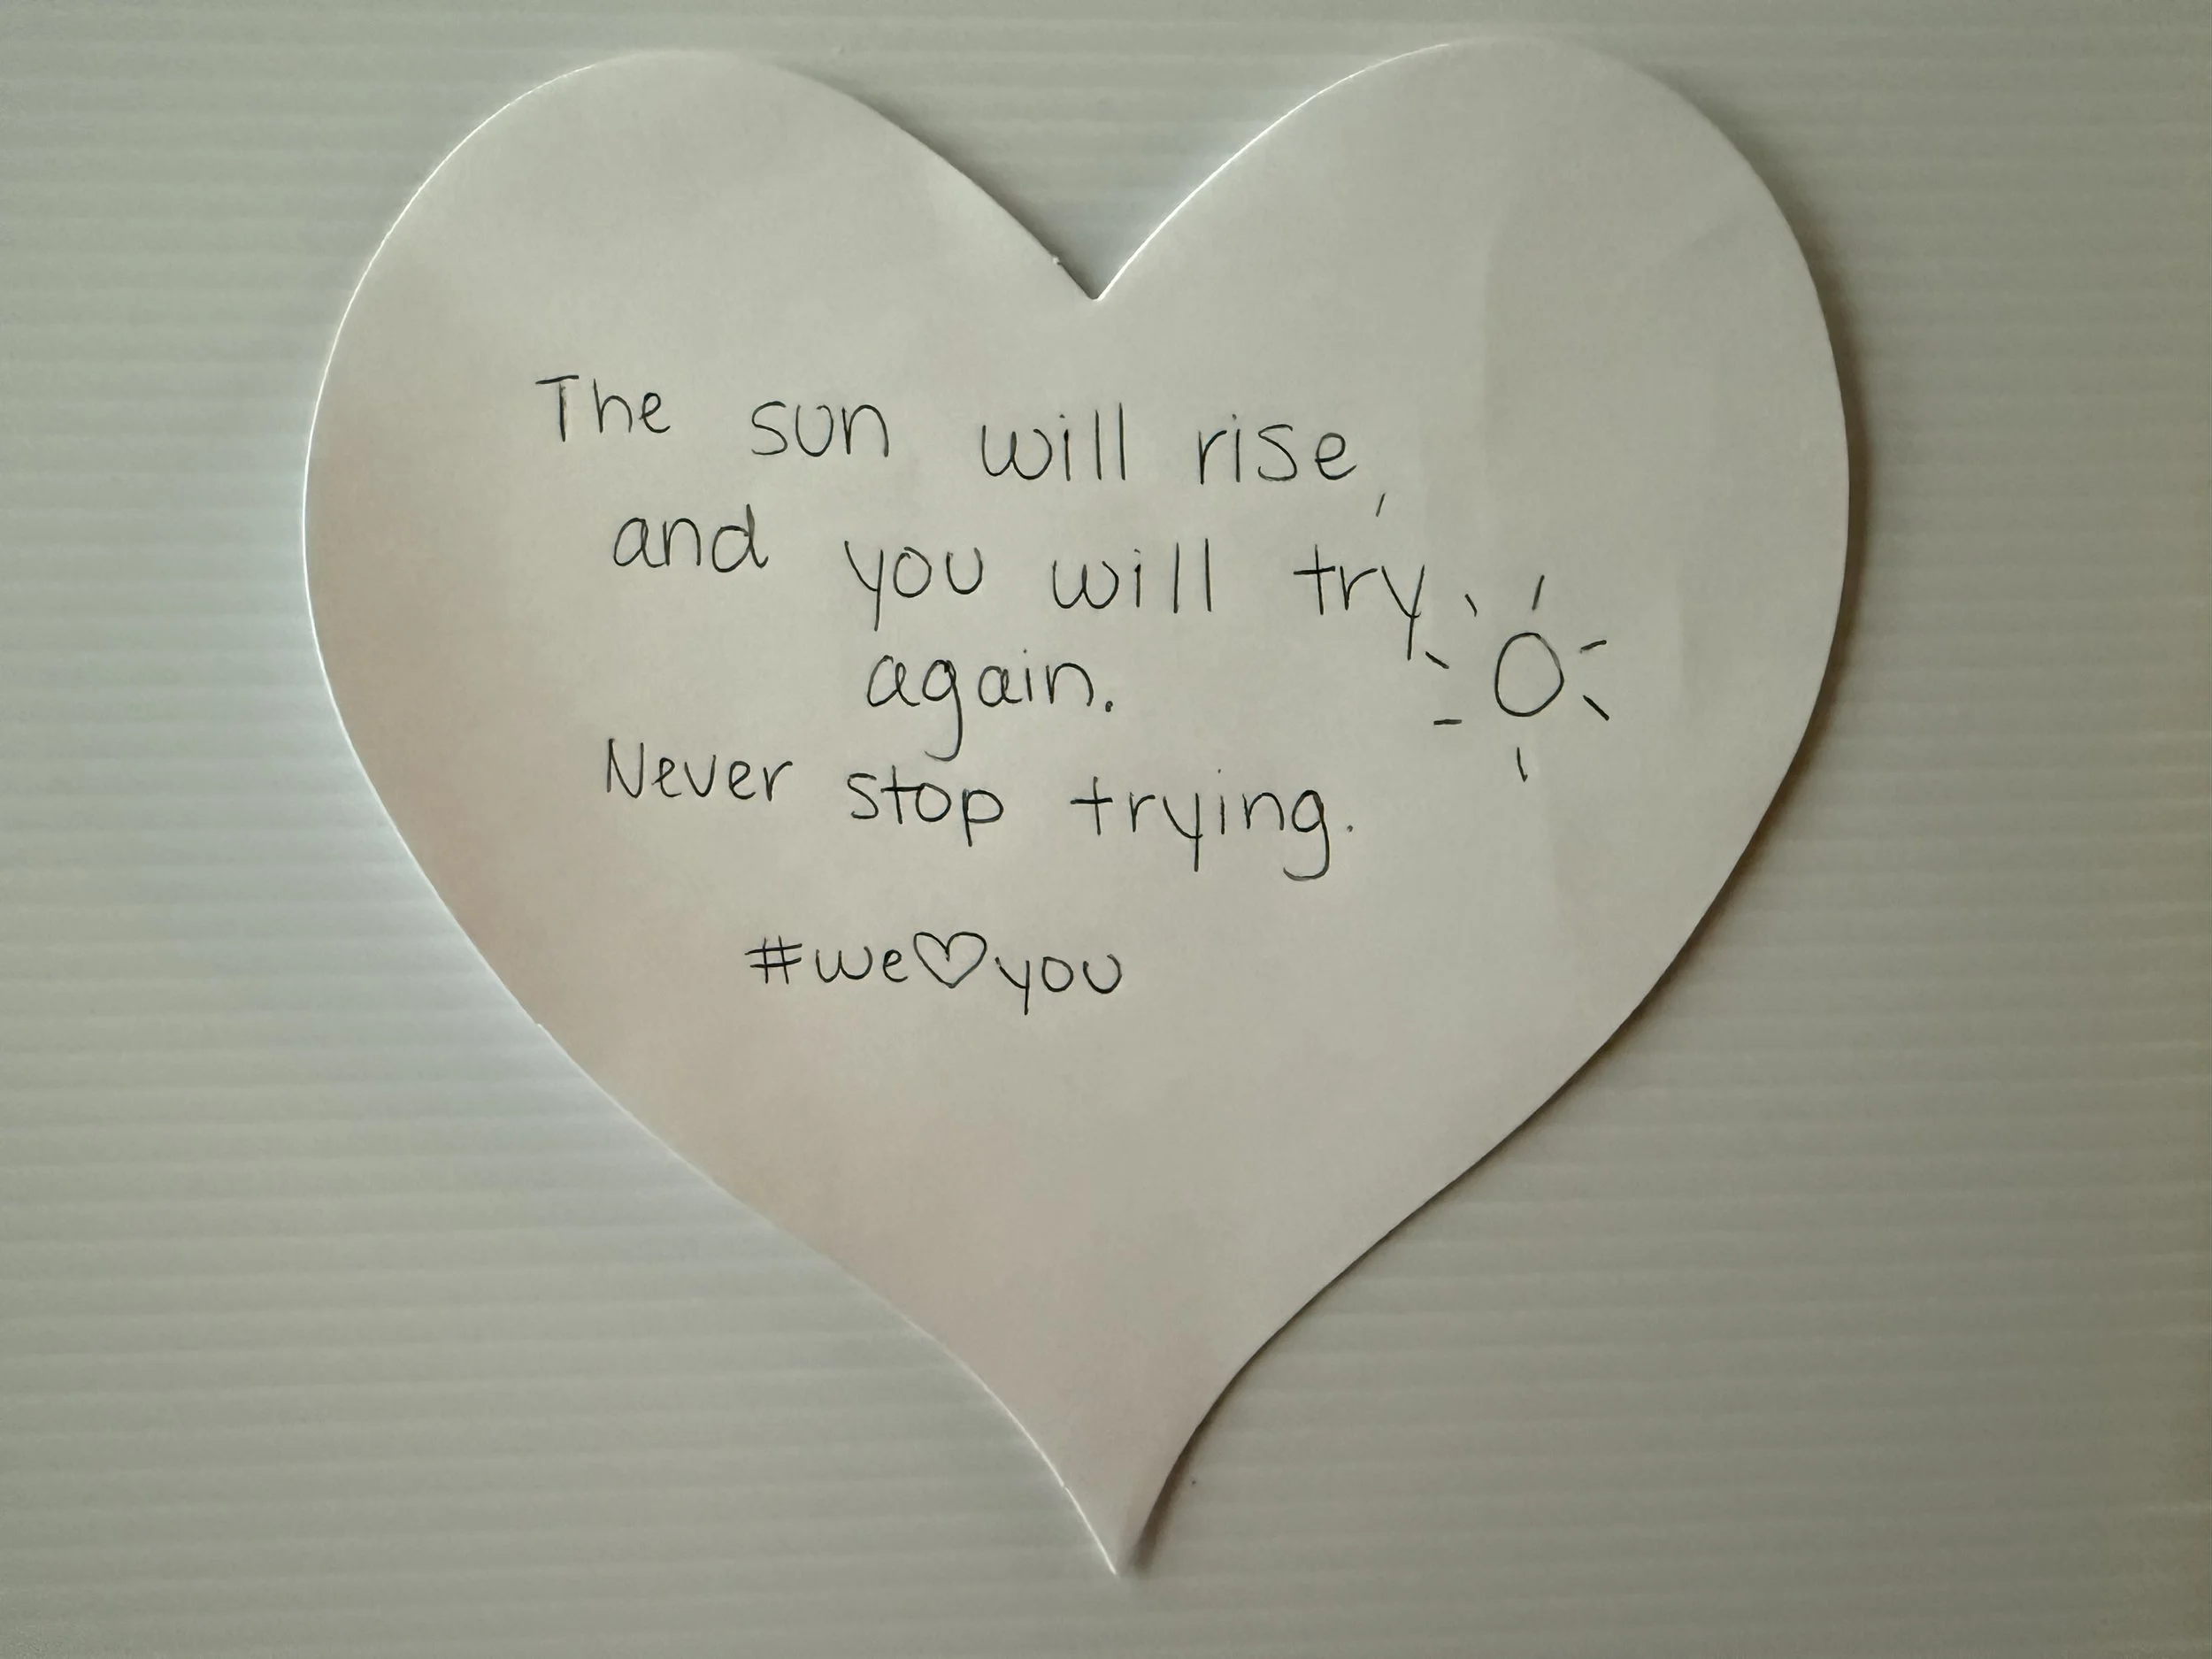 The sun will rise,
and you will try
again.
Never stop trying.
#we♡you